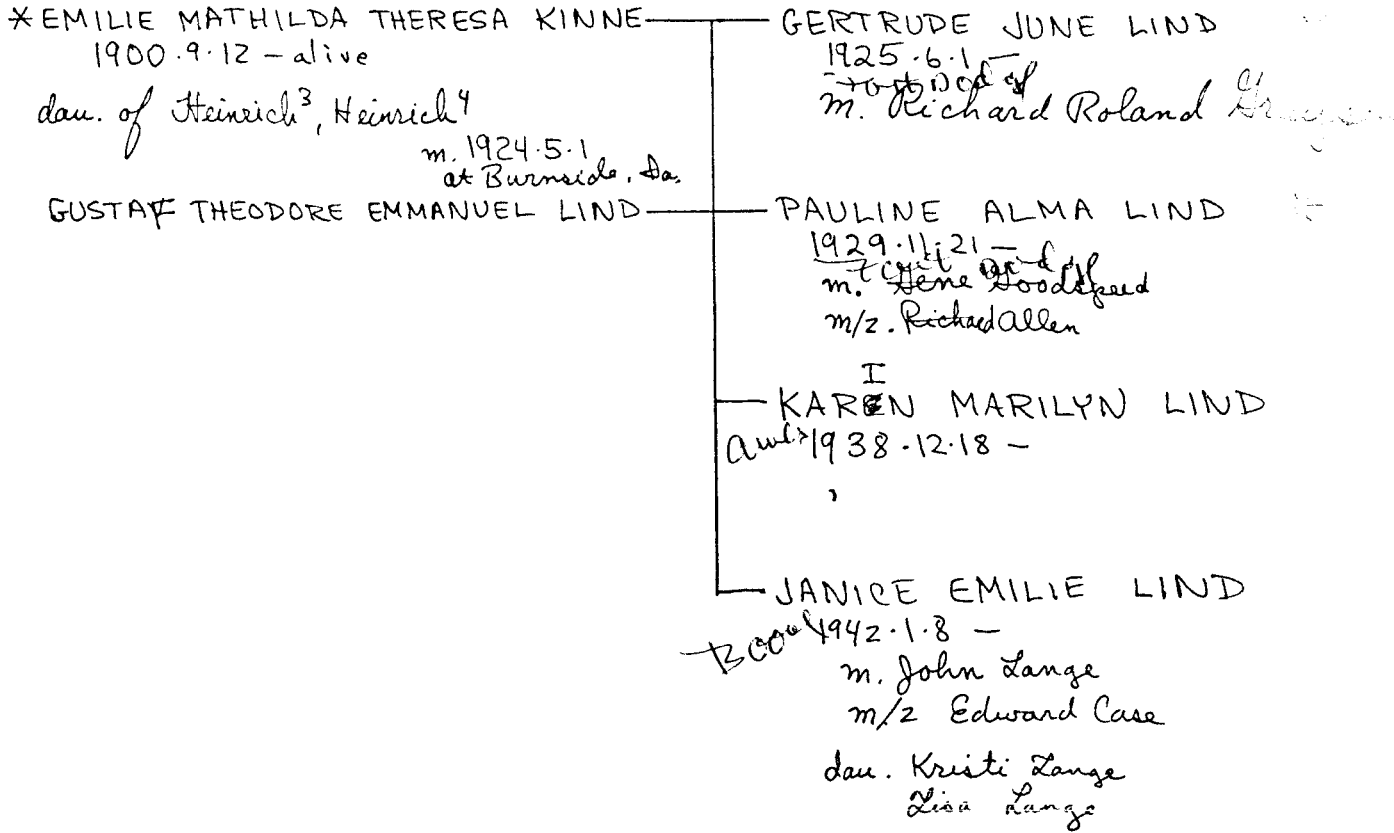 *EMILIE MATHILDA THERESA KINNE
1900.9.12 – alive
dau. of Heinrich³, Heinrich⁴
m. 1924.5.1
at Burnside, Ia.
GUSTAF THEODORE EMMANUEL LIND
GERTRUDE JUNE LIND
1925.6.1 –
m. Richard Roland
PAULINE ALMA LIND
1929.11.21 –
m. Gene Goodspeed
m/2. Richard Allen
I
KAREN MARILYN LIND
1938.12.18 –
JANICE EMILIE LIND
1942.1.8 –
m. John Lange
m/2 Edward Case
dau. Kristi Lange
Lisa Lange